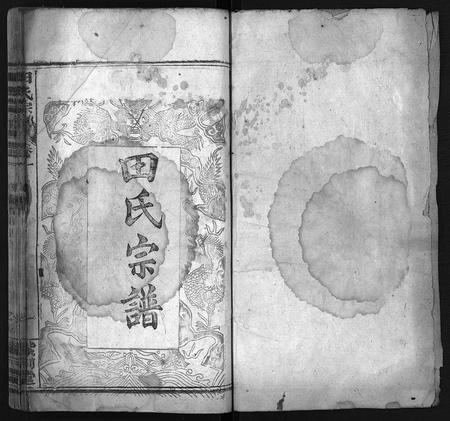 田氏宗譜